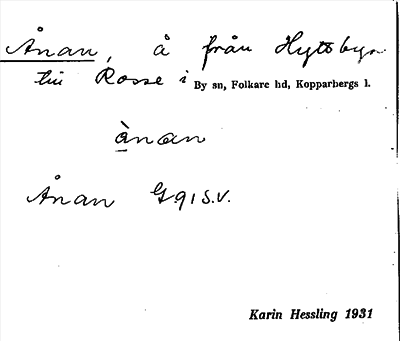 Ånan, å från Hyttbyn
till Rosse i By sn, Folkare hd, Kopparbergs l.
ànan
Ånan G91 S.V.
Karin Hessling 1931